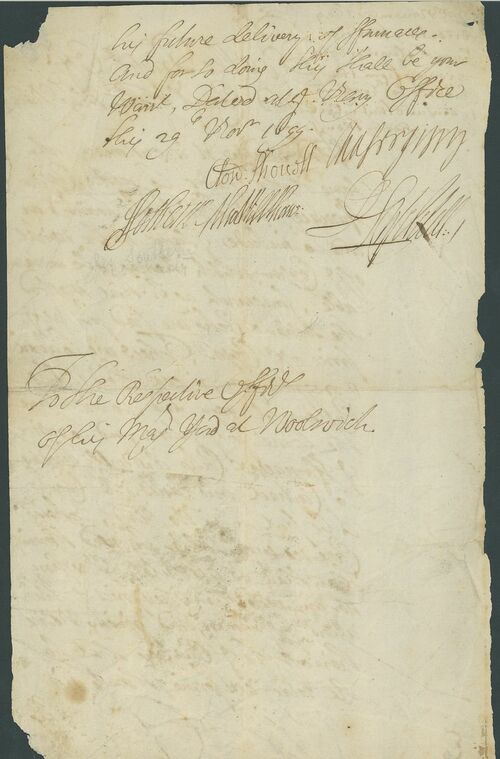 his future delivery of ffurnaces.
And for so doing this shall be your
Warrt, Dated at ye Navy Office
this 29th Novr 1699.
To the Respective Officrs
of his Majs Yard at Woolwich.